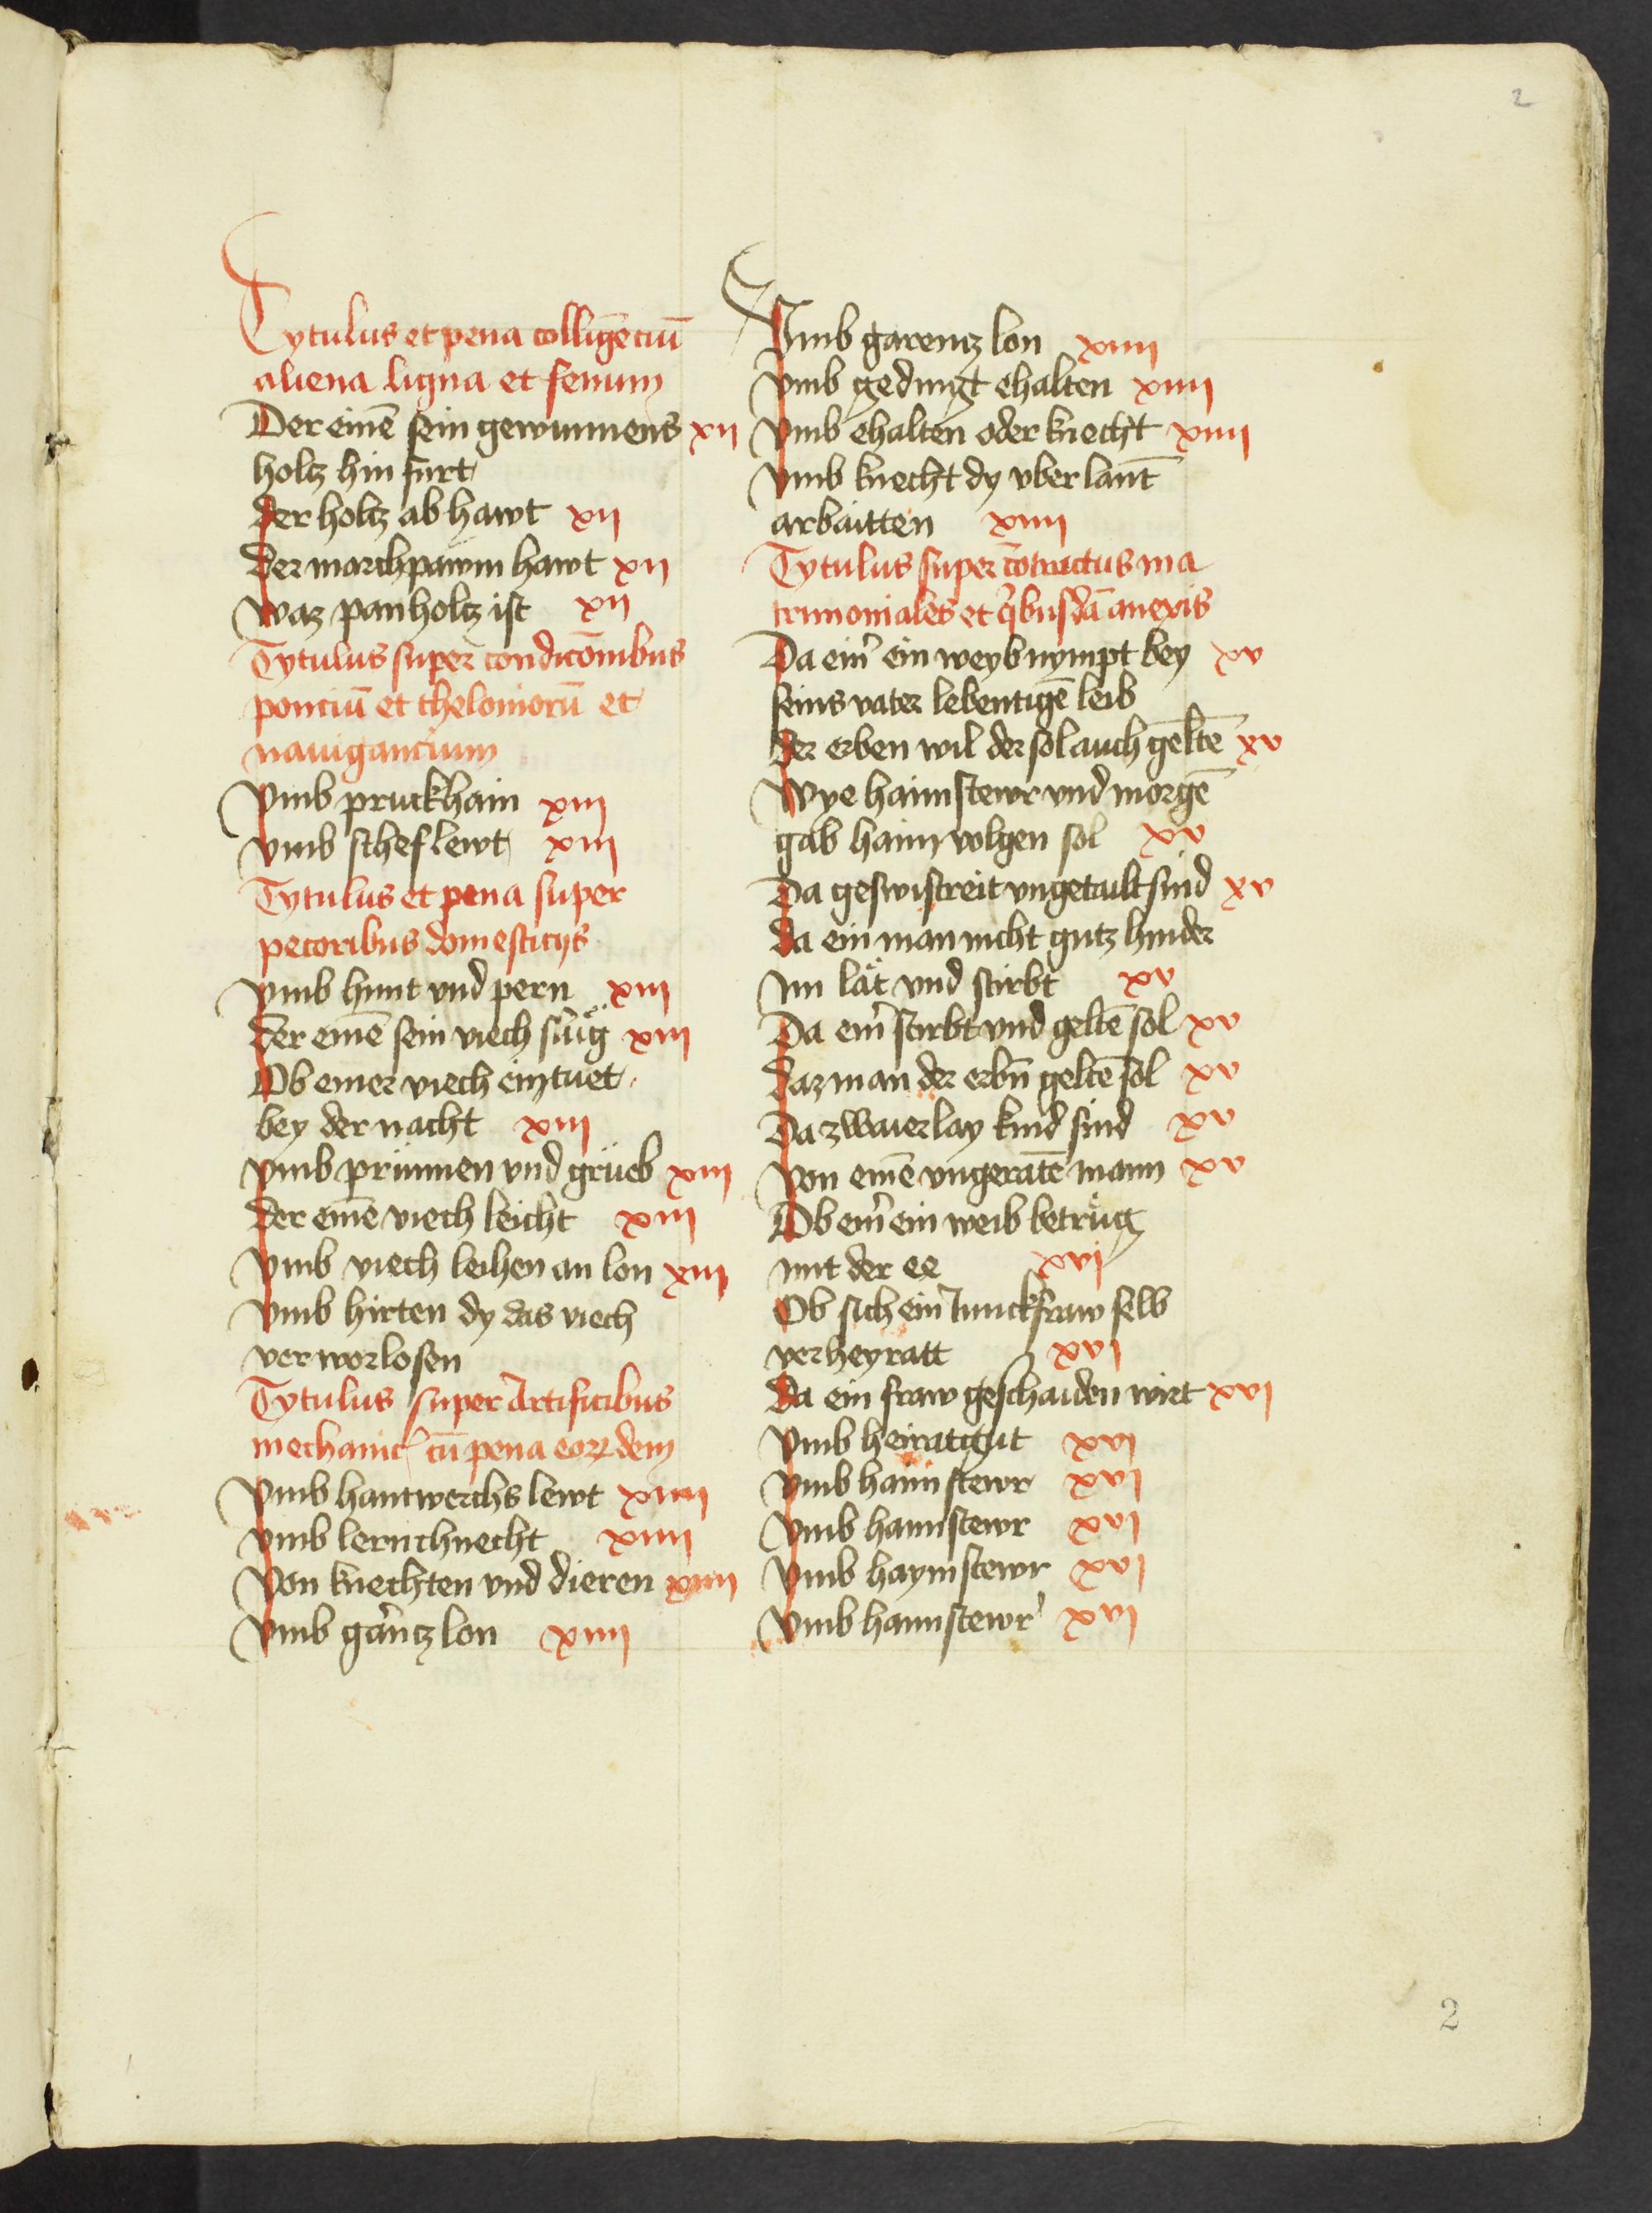 2
Tytulus et pena colligēciū
aliena ligna et fenum
Der einē sein gewunnens xij
holtz hin furt
der holtz ab hawt xij
der marchpawm hawt xij
waz panholtz ist xij
Tytulus super condicōnibus
ponciū et theloniorū et
nauigancium
Vmb pruckhain xiij
vmb scheflewt xiij
Tytulus et pena super
pecoribus domesticijs
vmb hunt vnd pern xiij
der einē sein viech slüg xiij
Ob einer viech eintuet
bey der nacht xiij
vmb prünnen vnd grüeb xiij
der einē viech leicht xiij
vmb viech leihen an lon xiij
vmb hirten dy das viech
verworlosen
Tytulus super Artificibus
mechanic̄ cū pena eorꝝdem
vmb hantwerchs lewt xiiij
vmb lernchnecht xiiij
von knechten vnd dieren xiiij
vmb garn̄tz lon xiiij
Vmb garentz lon xiiij
vmb gedingt ehalten xiiij
vmb ehalten oder knecht xiiij
vmb knecht dy vber lannt
arbaitten xiiij
Tytulus super cōtractus ma
trimoniales et q̄busdā anexis
Da ein̄ ein weyb nympt bey xv
seins vater lebentigē leib
der erben wil der sol auch geltē xv
Wye haimstewr vnd morgē
gab haim volgen sol xv
Da geswistreit vngetailt sind xv
da ein man nicht gutz hinder
im lät vnd stirbt xv
Da ein̄ stirbt vnd geltē sol xv
daz man der erbn̄ geltē sol xv
Da zwaierlay kind sind xv
von einē vngeratē mann xv
Ob ein̄ ein weib betrüg
mit der ee xvj
Ob sich ein Junckfraw selb
verheyratt xvj
da ein fraw geschaiden wirt xvj
vmb heiratgut xvj
vmb haimstewr xvj
vmb haimstewr xvj
vmb haymstewr xvj
vmb haimstewr xvj
2